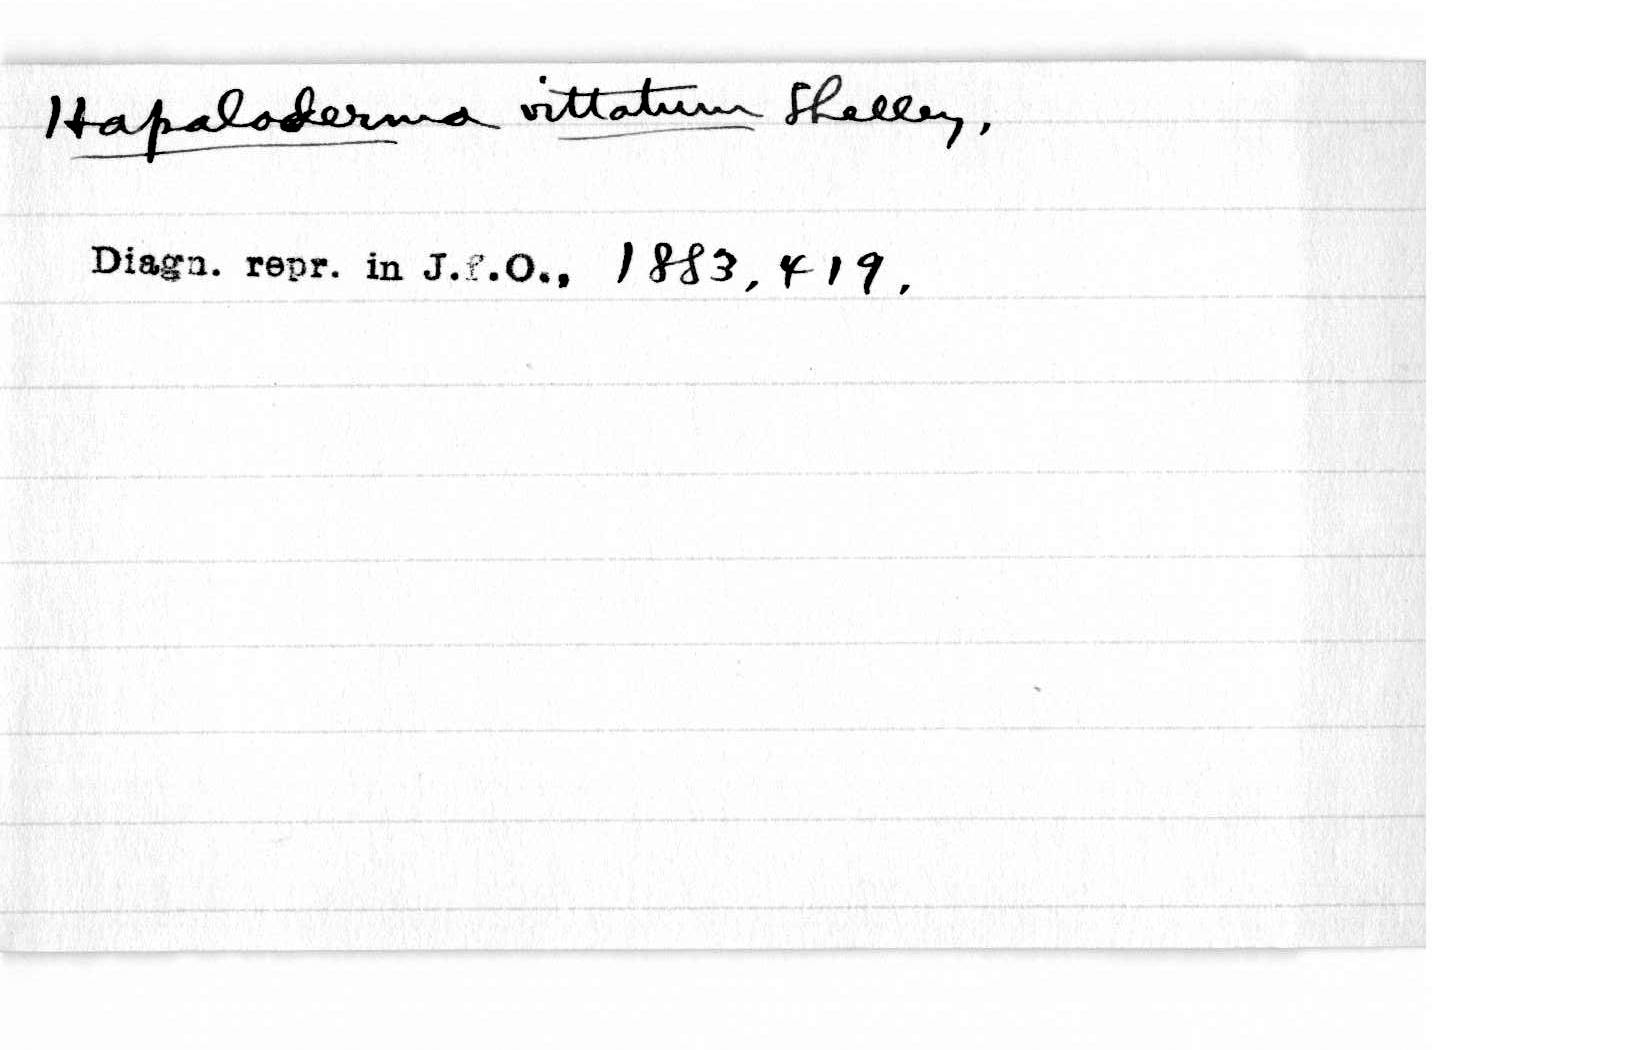 Hapaloderma vittatum Shelley,
Diagn. repr. in J.f.O., 1883, 419,